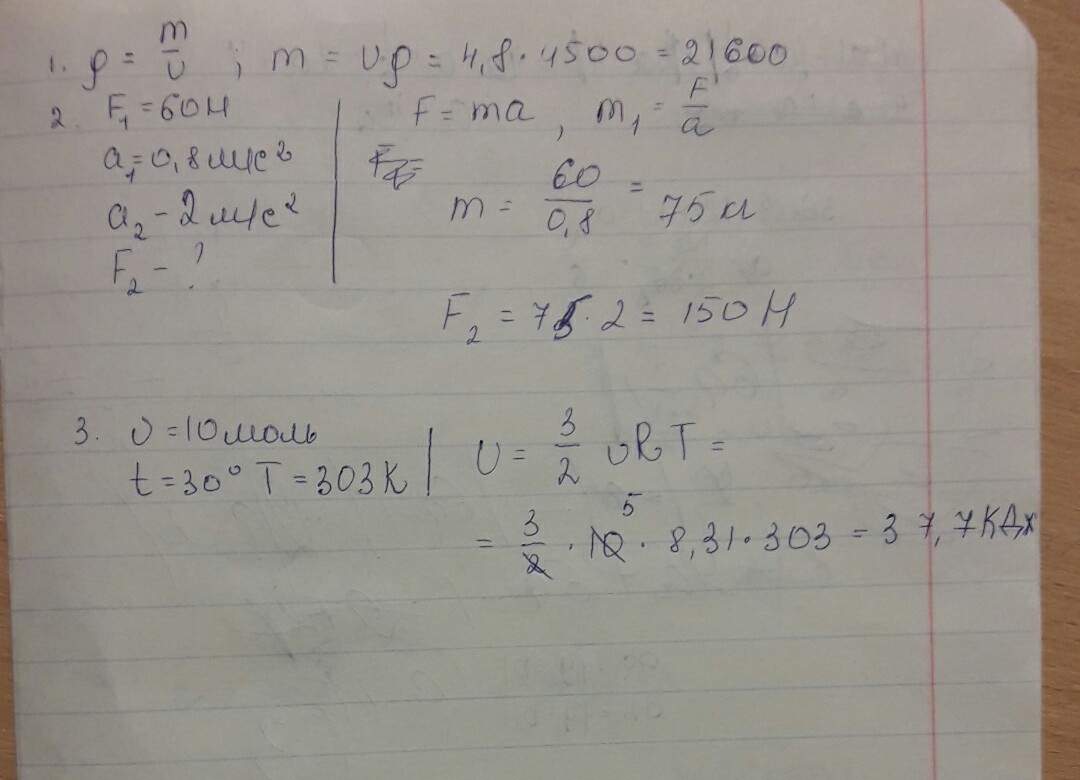 1. ρ = m/υ ; m = υρ = 4,8 · 4500 = 21600
2. F₁ = 60Н
a₁ = 0,8 м/с²
a₂ - 2 м/с²
F₂ - ?
F = ma , m₁ = F/a
m = 60/0,8 = 75 кг
F₂ = 75 · 2 = 150 Н
3. υ = 10 моль
t = 30° T = 303К
U = 3/2 υRT =
= 3/2 · 10 5 · 8,31 · 303 = 37,7 КДж